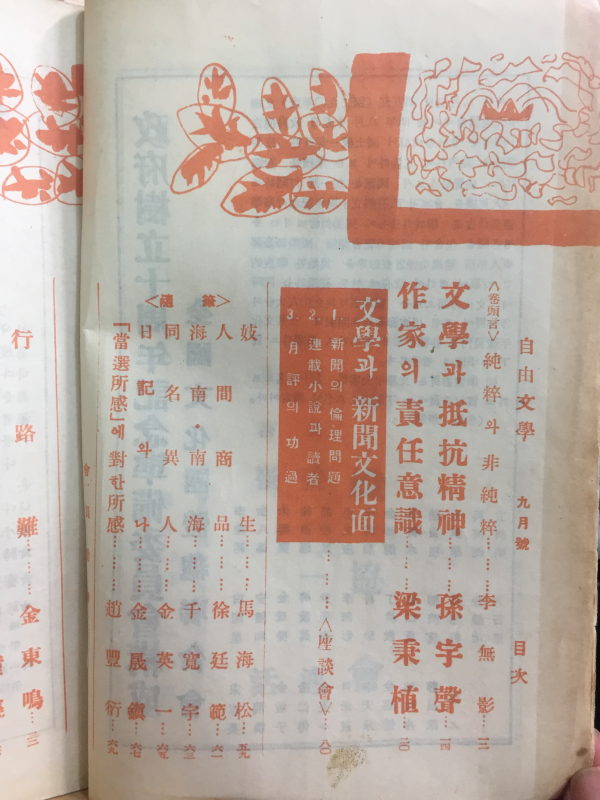 自由文學 九月號 目次
〈卷頭言〉純粹와 非純粹……李無影
文學과 抵抗精神……孫宇聲…一四
作家의 責任意識……梁秉植…二〇
文學과 新聞文化面……〈座談會〉…八〇
1. 新聞의 倫理問題
2. 連載小說과 讀者
3. 月評의 功過
〈隨筆〉
妓生……馬海松…五九
人間商品……徐廷範…六一
海南・南海……千寬宇…六三
同名異人……金英一…六五
日記와 나……金晟鎭…六七
「當選所感」에 對한 所感……趙豐衍…六九
行路難……金東鳴